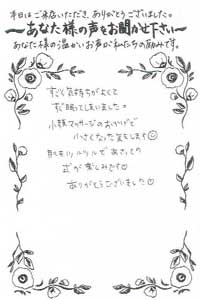 本日はご来店いただき、ありがとうございました。
～あなた様の声をお聞かせ下さい～
あなた様の温かいお声が私たちの励みです。
すごく気持ちがよくて
すぐ眠ってしまいました。
小顔マッサージのおかげで
小さくなった気をします☺
肌もツルツルであさっての
式が楽しみです♡
ありがとうございました♡